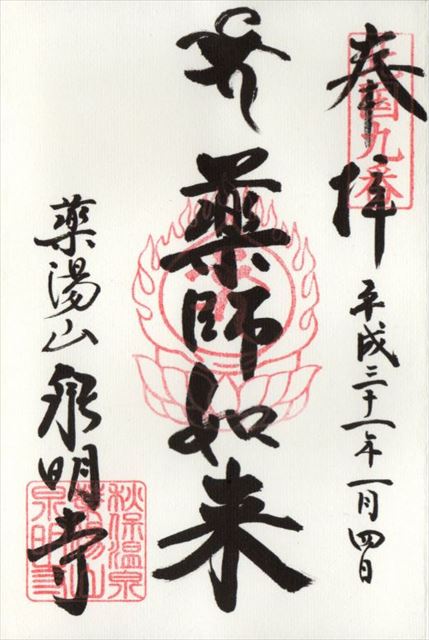 奉拝
平成三十一年一月四日
薬師如来
薬湯山
泉明寺
秋保温泉
薬湯山
泉明寺